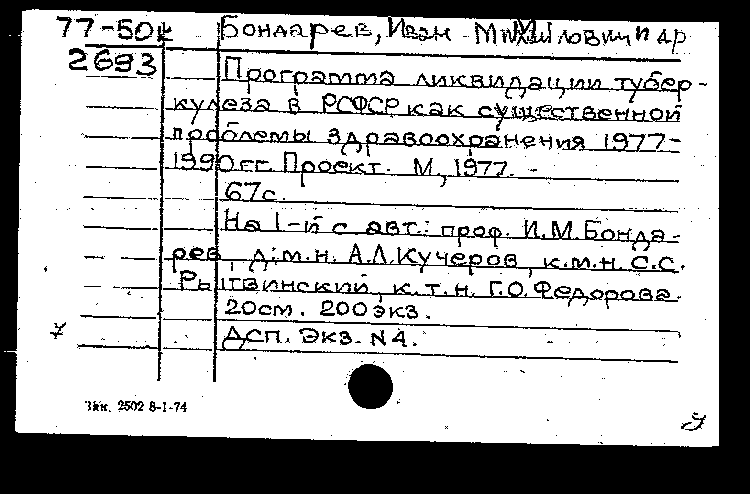 77-50к Бондарев, Иван Михайлович и др
2693
Программа ликвидации тубер-
кулеза в РСФСР как существенной
проблемы здравоохранения 1977-
1990гг. Проект. М, 1977. -
67с.
На 1-й с авт.: проф. И.М.Бонда-
рев, д.м.н. А.Л.Кучеров, к.м.н. С.С.
Рытвинский, к.т.н. Г.О.Федорова.
20см. 200экз.
ДСП. Экз. N4.
Зак. 2502 8-1-74